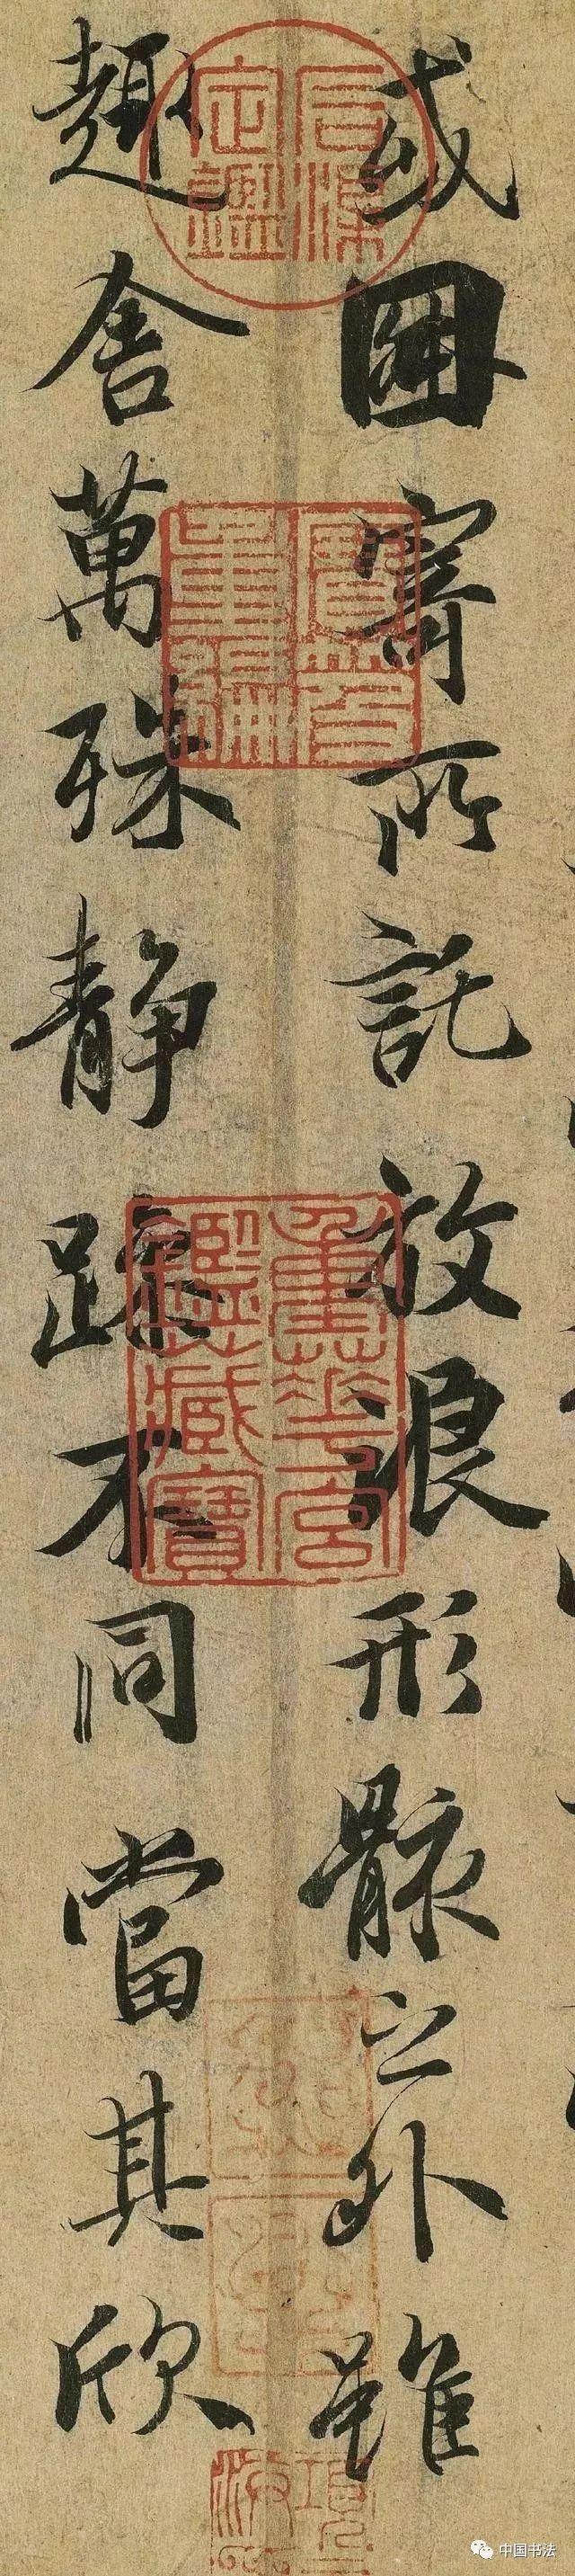 或因寄所託放浪形骸之外雖
趣舍萬殊静躁不同當其欣
石渠定鑑
寶笈重編
重華宮鑑藏寶
中国书法